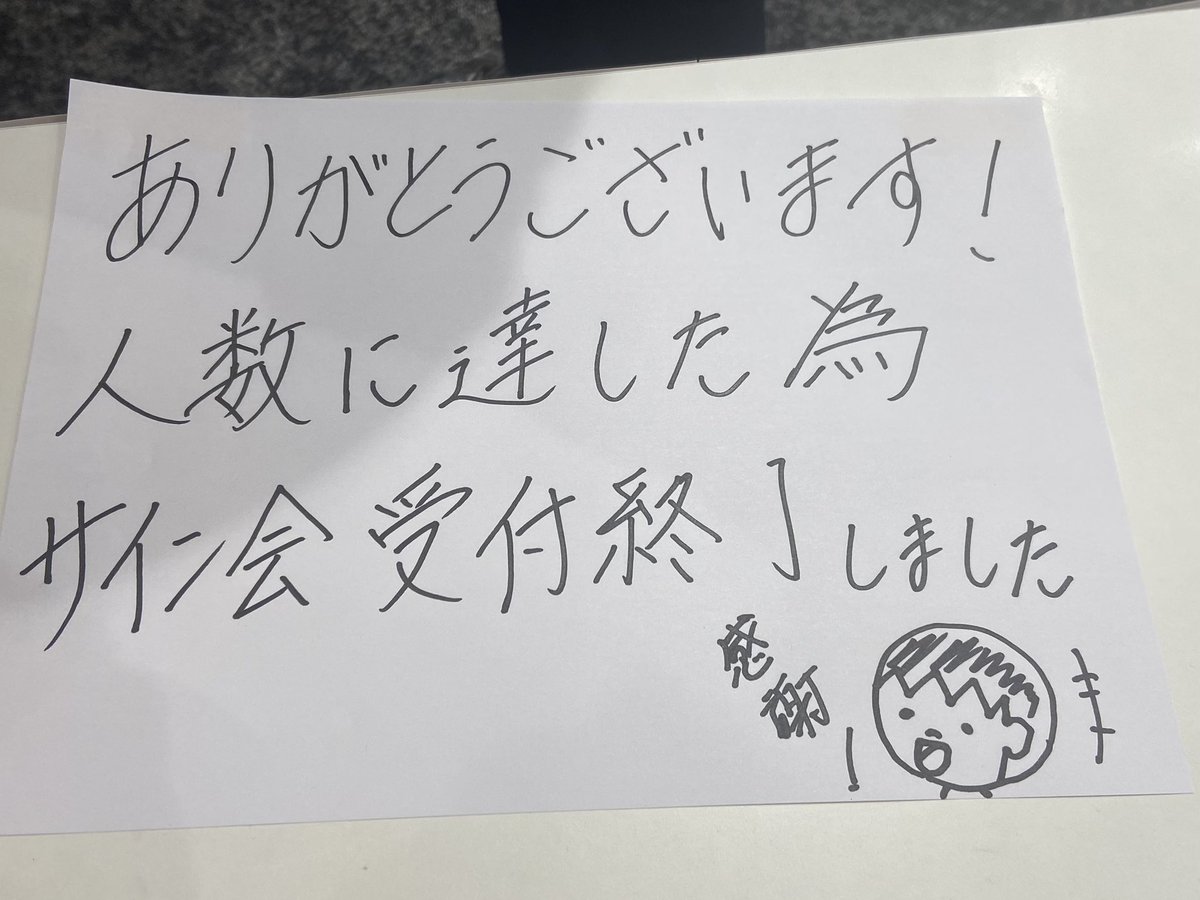 ありがとうございます!
人数に達した為
サイン会 受付終了しました
感謝!